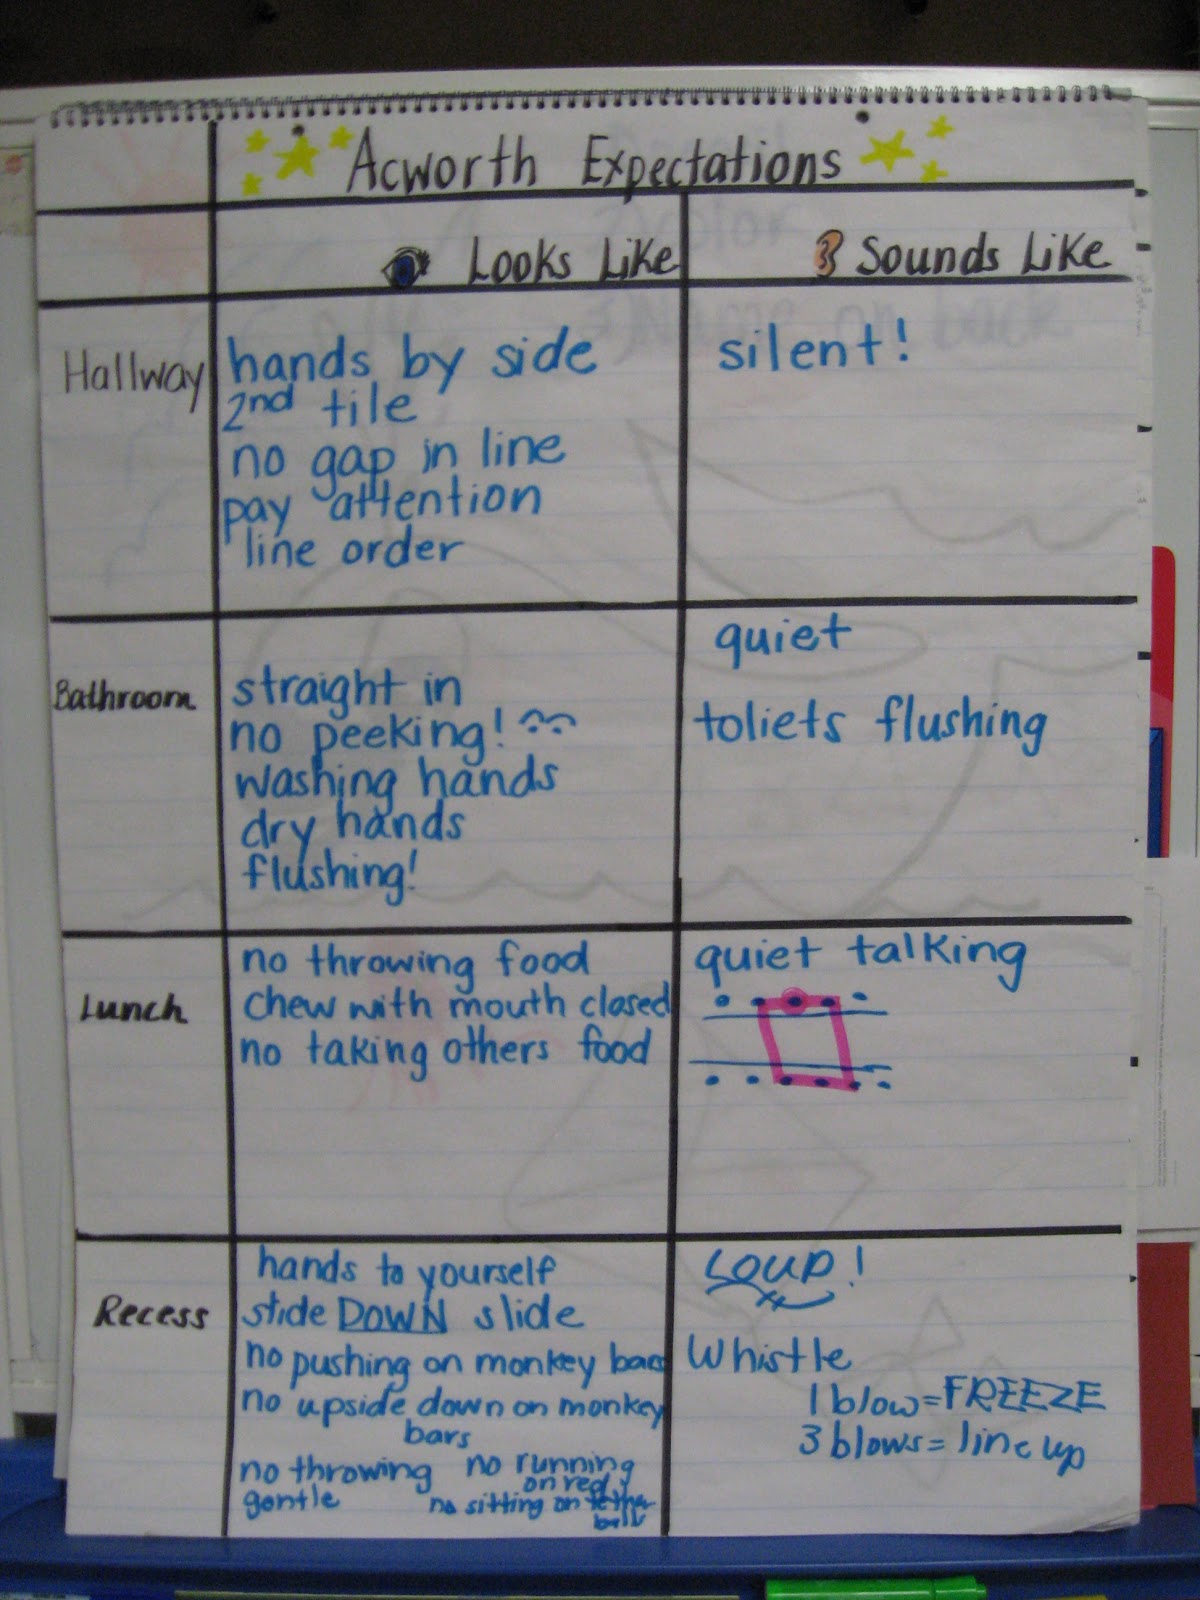 Acworth Expectations
Looks Like
Sounds Like
Hallway
hands by side
2nd tile
no gap in line
pay attention
line order
silent!
Bathroom
straight in
no peeking!
washing hands
dry hands
flushing!
quiet
toliets flushing
Lunch
no throwing food
chew with mouth closed
no taking others food
quiet talking
Recess
hands to yourself
slide DOWN slide
no pushing on monkey bars
no upside down on monkey
bars
no throwing
gentle
no running
on red
no sitting on tether
balls
LOUD!
Whistle
1 blow=FREEZE
3 blows= line up